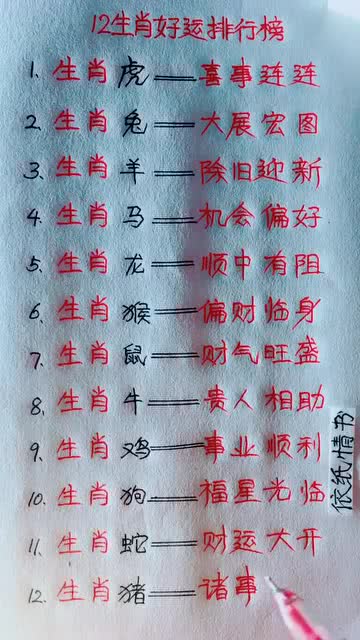 12生肖好运排行榜
1、生肖虎——喜事连连
2、生肖兔——大展宏图
3、生肖羊——除旧迎新
4、生肖马——机会偏好
5、生肖龙——顺中有阻
6、生肖猴——偏财临身
7、生肖鼠——财气旺盛
8、生肖牛——贵人相助
9、生肖鸡——事业顺利
10、生肖狗——福星光临
11、生肖蛇——财运大开
12、生肖猪——诸事
依纸情书